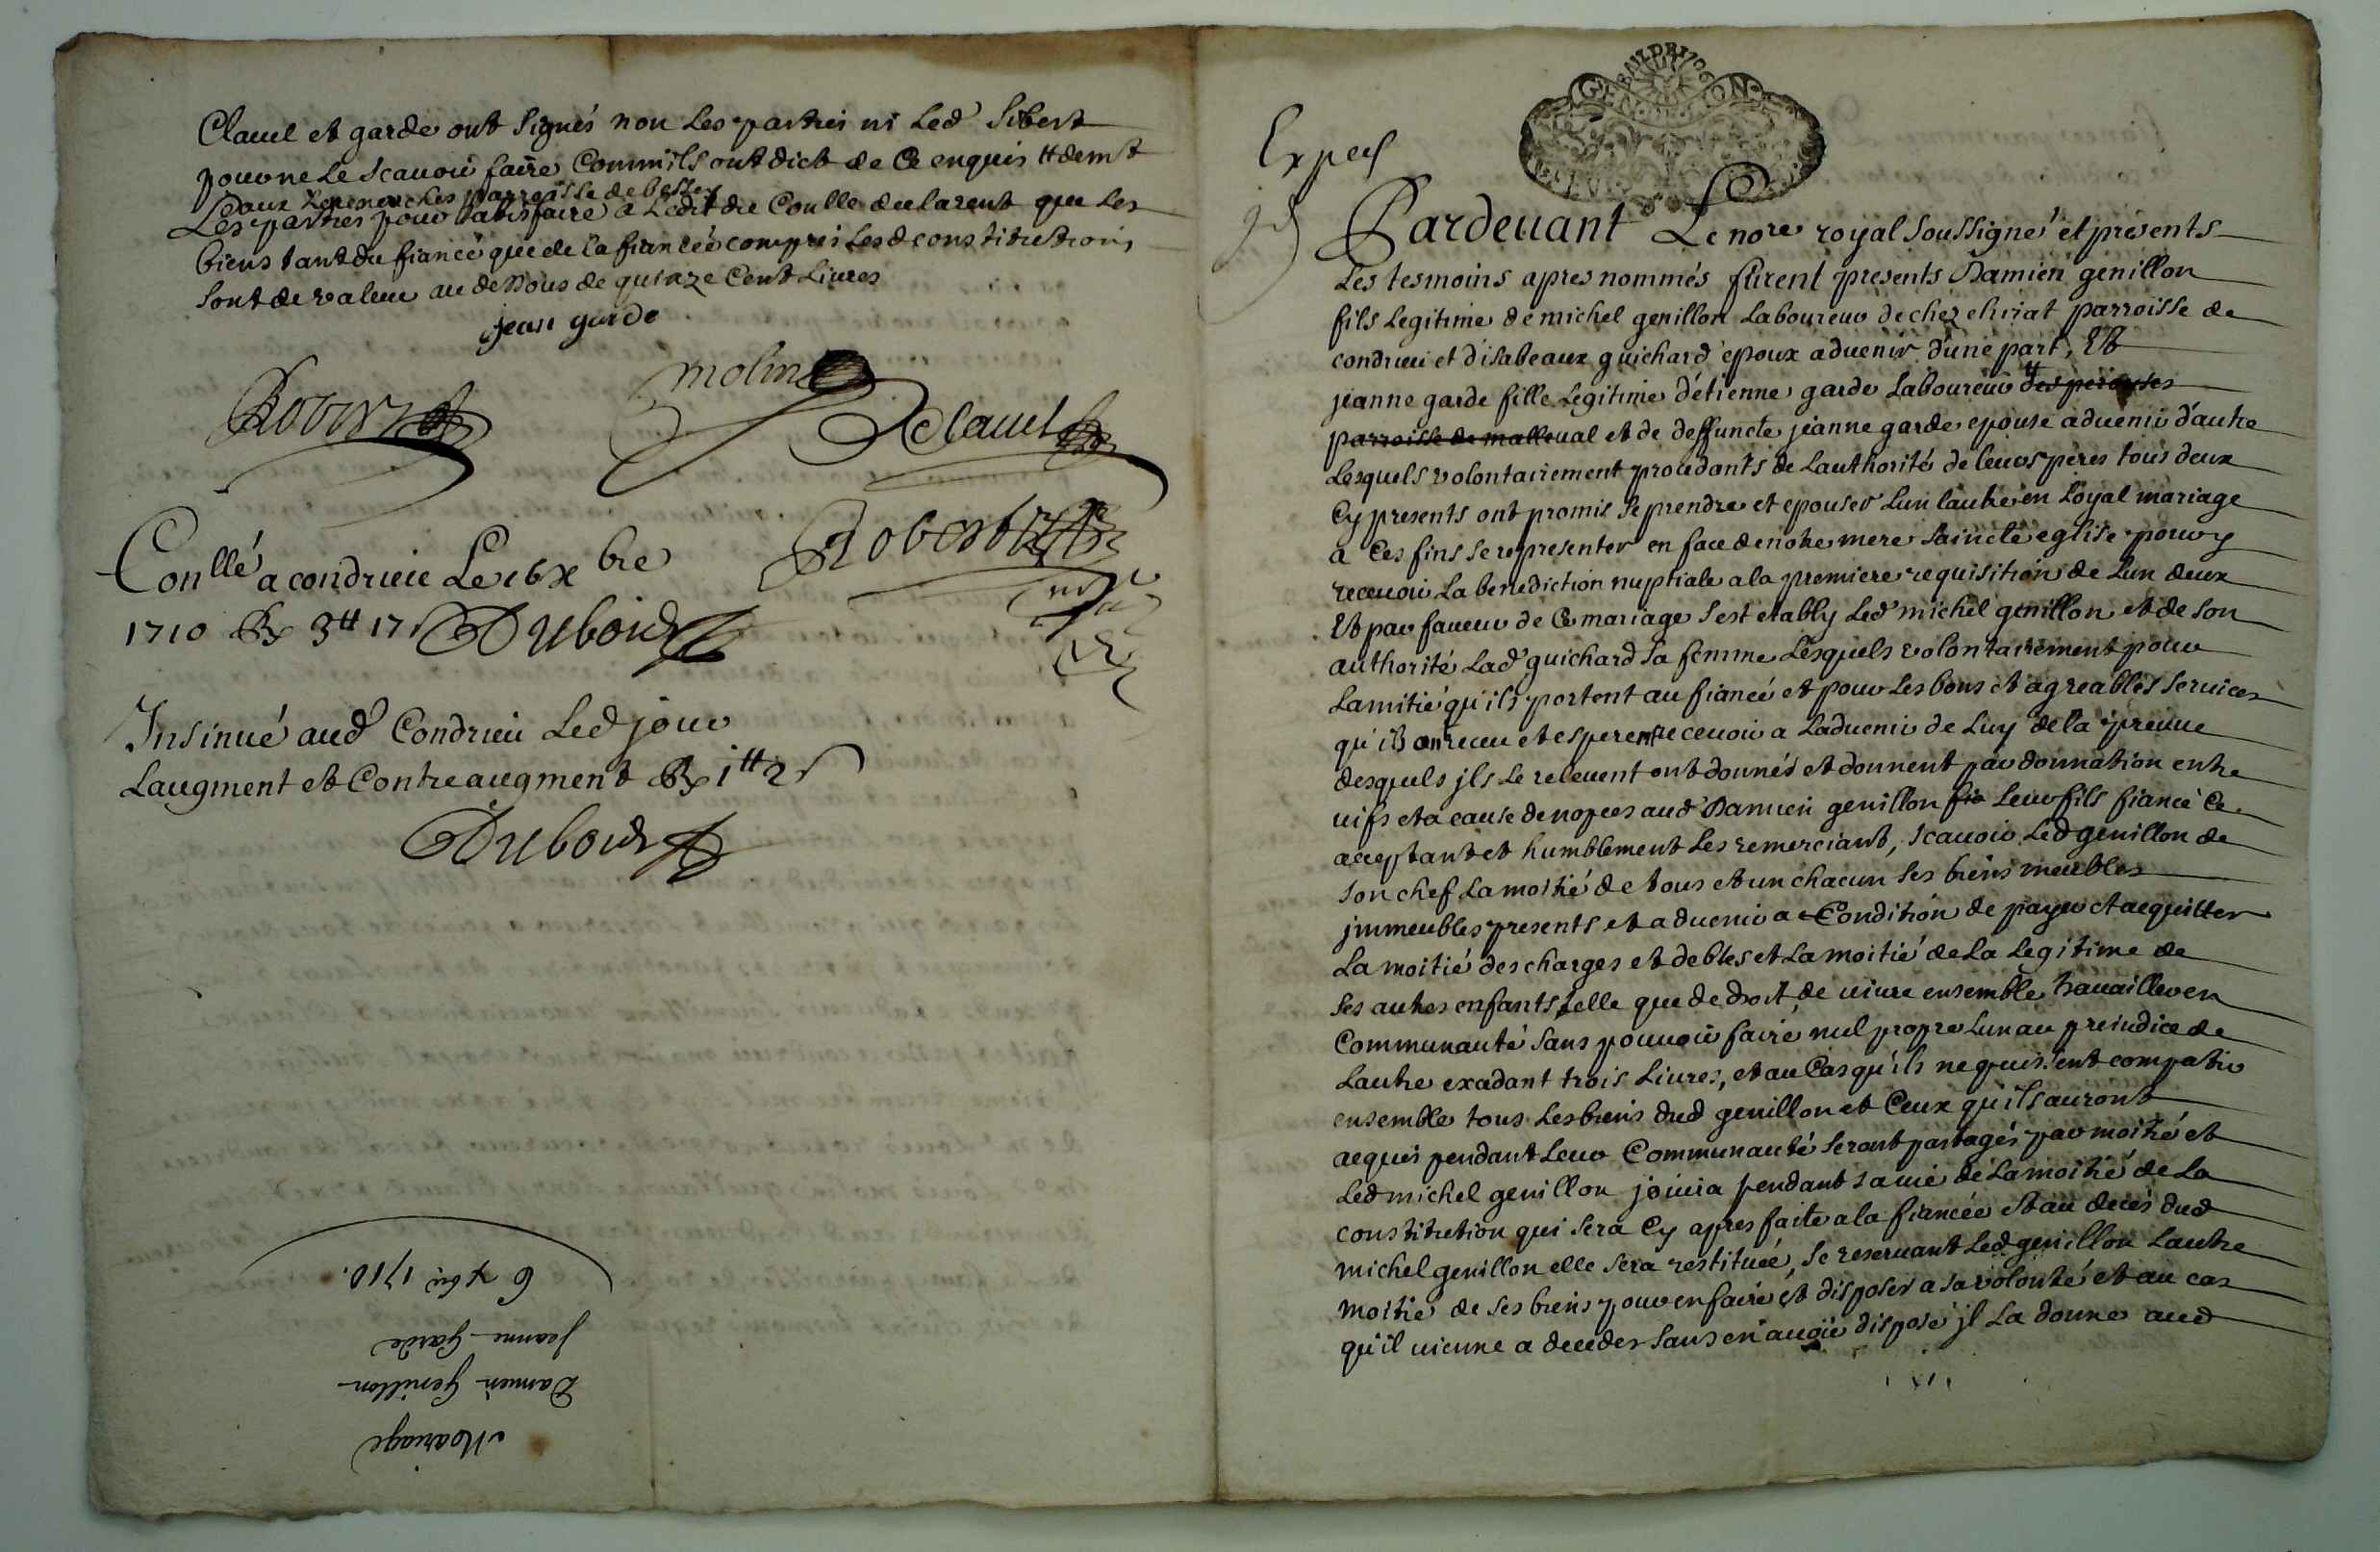 Clauel et garde ont signés non les parties ni led sibert
pour ne le scauoir faire comm ils ont dict de ce enquis # demt
aux parroisse de bessey
Les parties pour satisfaire a l'edit du Conlle declarent que les
biens tant du fiancé que de la fiancée compris lesd constitutions
sont de valeur au dessous de quinze Cent Liures
jean garde
molin
Robert
clauel
Robert
Conllé a condrieu Le 16 xbre
1710 Rx 3# 17s Dubois
Insinué aud Condrieu Led jour
Laugment et Contreaugment Rx 1# 2s
Dubois
Mariage
Damien Genillon
Jeanne Garde
6 xbre 1710.
GEN LION
BAIL DE 1706
Exped
Pardeuant Le nore royal soussigné et presents
Les tesmoins apres nommés furent presents Damien genillon
fils legitime de michel genillon Laboureur de chez chirat parroisse de
condrieu et d'isabeaux guichard epoux aduenir d'une part, Et
jeanne garde fille legitime d'étienne garde Laboureur # des perouses
parroisse de malleual et de deffuncte jeanne garde epouse aduenir d'autre
Lesquels volontairement procedants de Lauthorité de leurs peres tous deux
Cy presents ont promis se prendre et epouser Lun lautre en Loyal mariage
a Ces fins se representer en face de notre mere saincte eglise pour y
receuoir La benediction nuptiale a la premiere requisition de Lun deux
Et par faueur de Ce mariage s'est etably Led michel genillon et de son
authorité Lad guichard sa femme Lesquels volontairement pour
Lamitié qu'ils portent au fiancé et pour Les bons et agreables seruices
qu'ils ont receu et esperent receuoir a Laduenir de Luy de la preuue
desquels jls le releuent ont donnés et donnent par donnation entre
uifs et a cause de nopces aud Damien genillon fia leur fils fiancé Ce
acceptant et humblement Les remerciant, scauoir Led genillon de
son chef La moitié de tous et un chacun ses biens meubles
jmmeubles presents et aduenir a Condition de payer et acquitter
La moitié des charges et debtes et La moitié de La Legitime de
ses autres enfants telle que de droit de uiure ensemble trauailler en
Communauté sans pouuoir faire nul propre Lun au preiudice de
Lautre exadant trois Liures, et au Cas qu'ils ne puissent compatir
ensemble tous Les biens dud genillon et Ceux qu'ils auront
acquis pendant Leur Communauté seront partagés par moitié et
Led michel genillon jouira pendant sa uie de La moitié de La
constitution qui sera Cy apres faite a la fiancée Et au decés dud
michel genillon elle sera restituée, se reseruant Led genillon Lautre
moitié de ses biens pour en faire et disposer a sa volonté et au cas
qu'il uienne a deceder sans en auoir disposé jl La donne aud